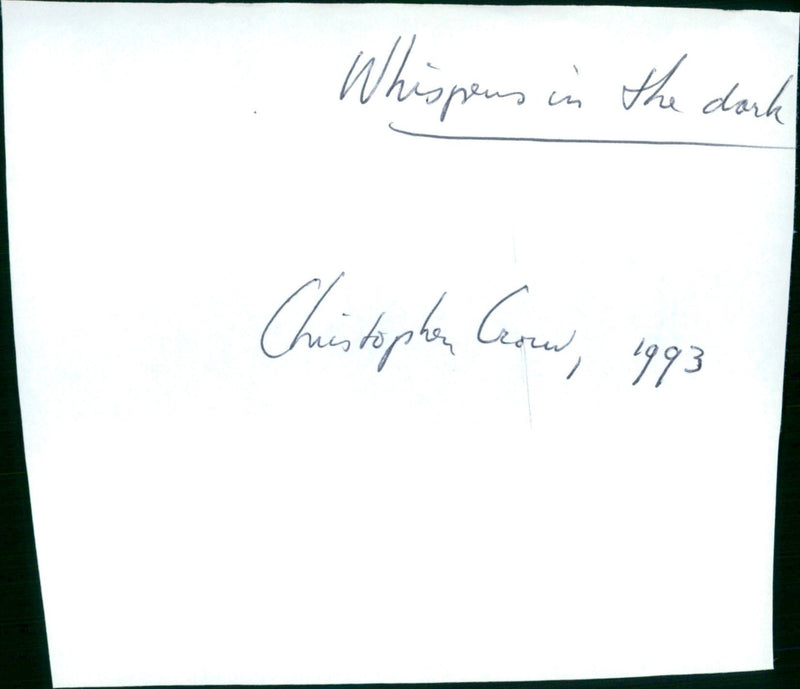 Whispers in the dark
Christopher Crowe, 1993